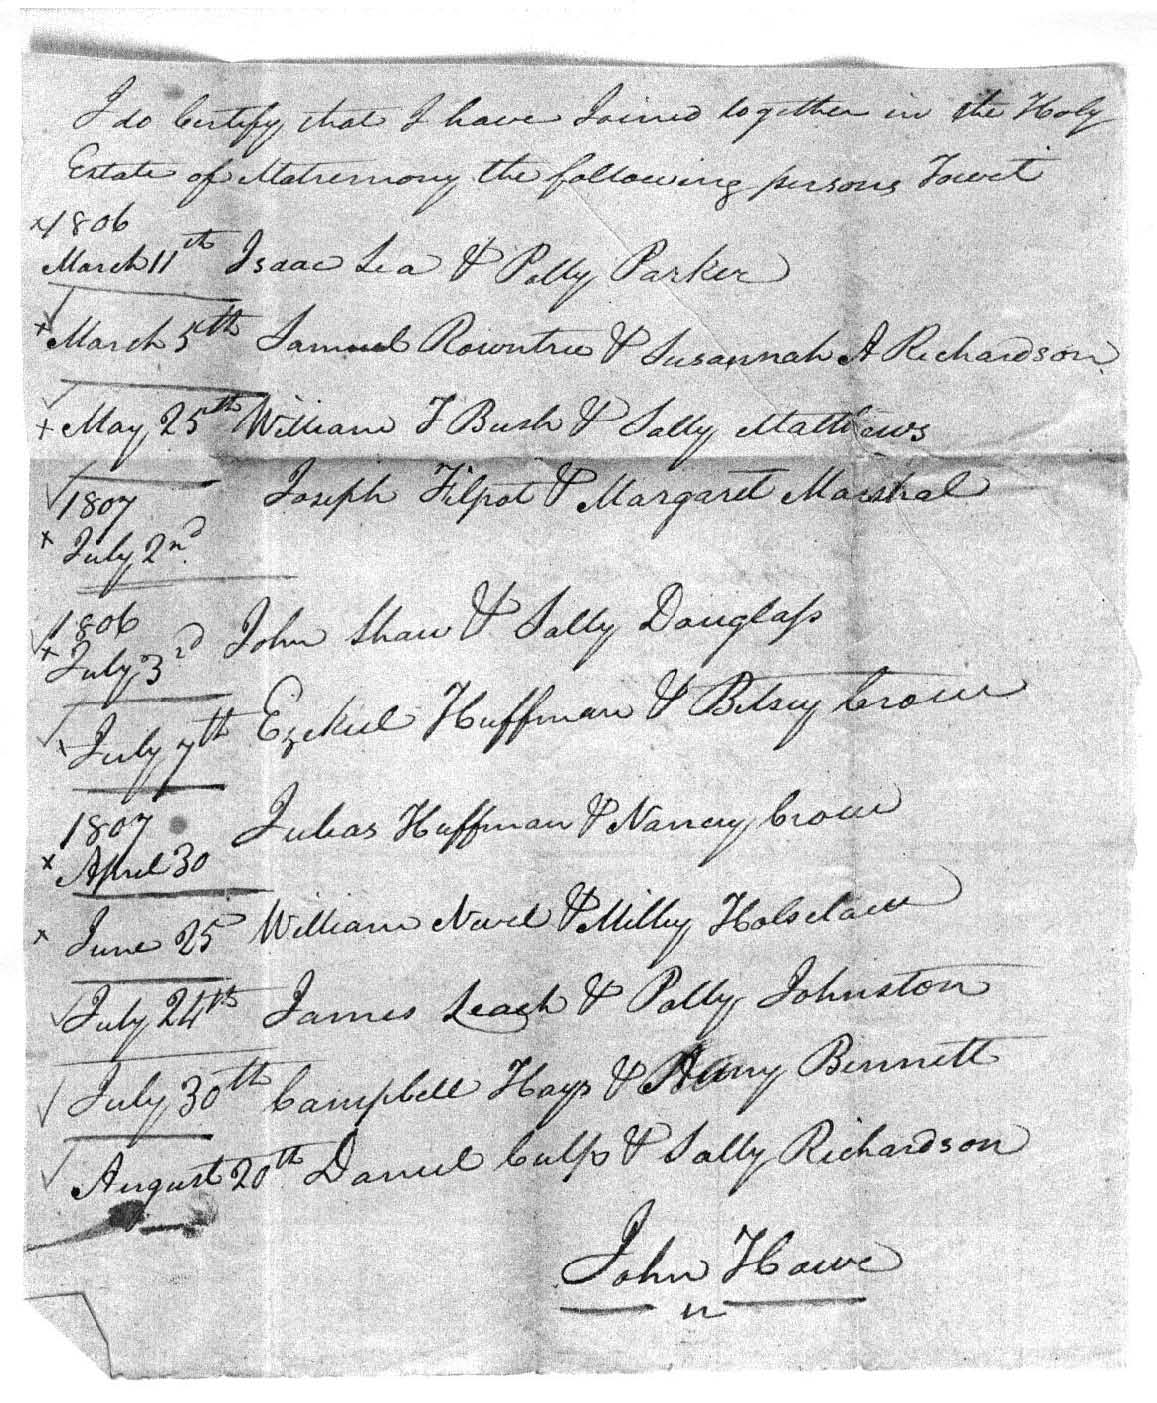 I do Certify that I have Joined together in the Holy
Estate of Matremony the following persons Towit
1806
March 11th Isaac Lea & Polly Parker
March 5th Samuel Rowntree & Susannah A Richardson
May 25th William T Bush & Sally Matthews
1807 Joseph Filpot & Margaret Marshal
July 2nd
1806
July 3rd John Shaw & Sally Douglass
July 7th Ezekiel Huffman & Betsey Crow
1807
April 30 Julias Huffman & Nancy Crow
June 25 William Nevel & Milley Holsclaw
July 24th James Leach & Polly Johnston
July 30th Campbell Hays & Bennett
August 20th Daniel Culp & Sally Richardson
John Howe